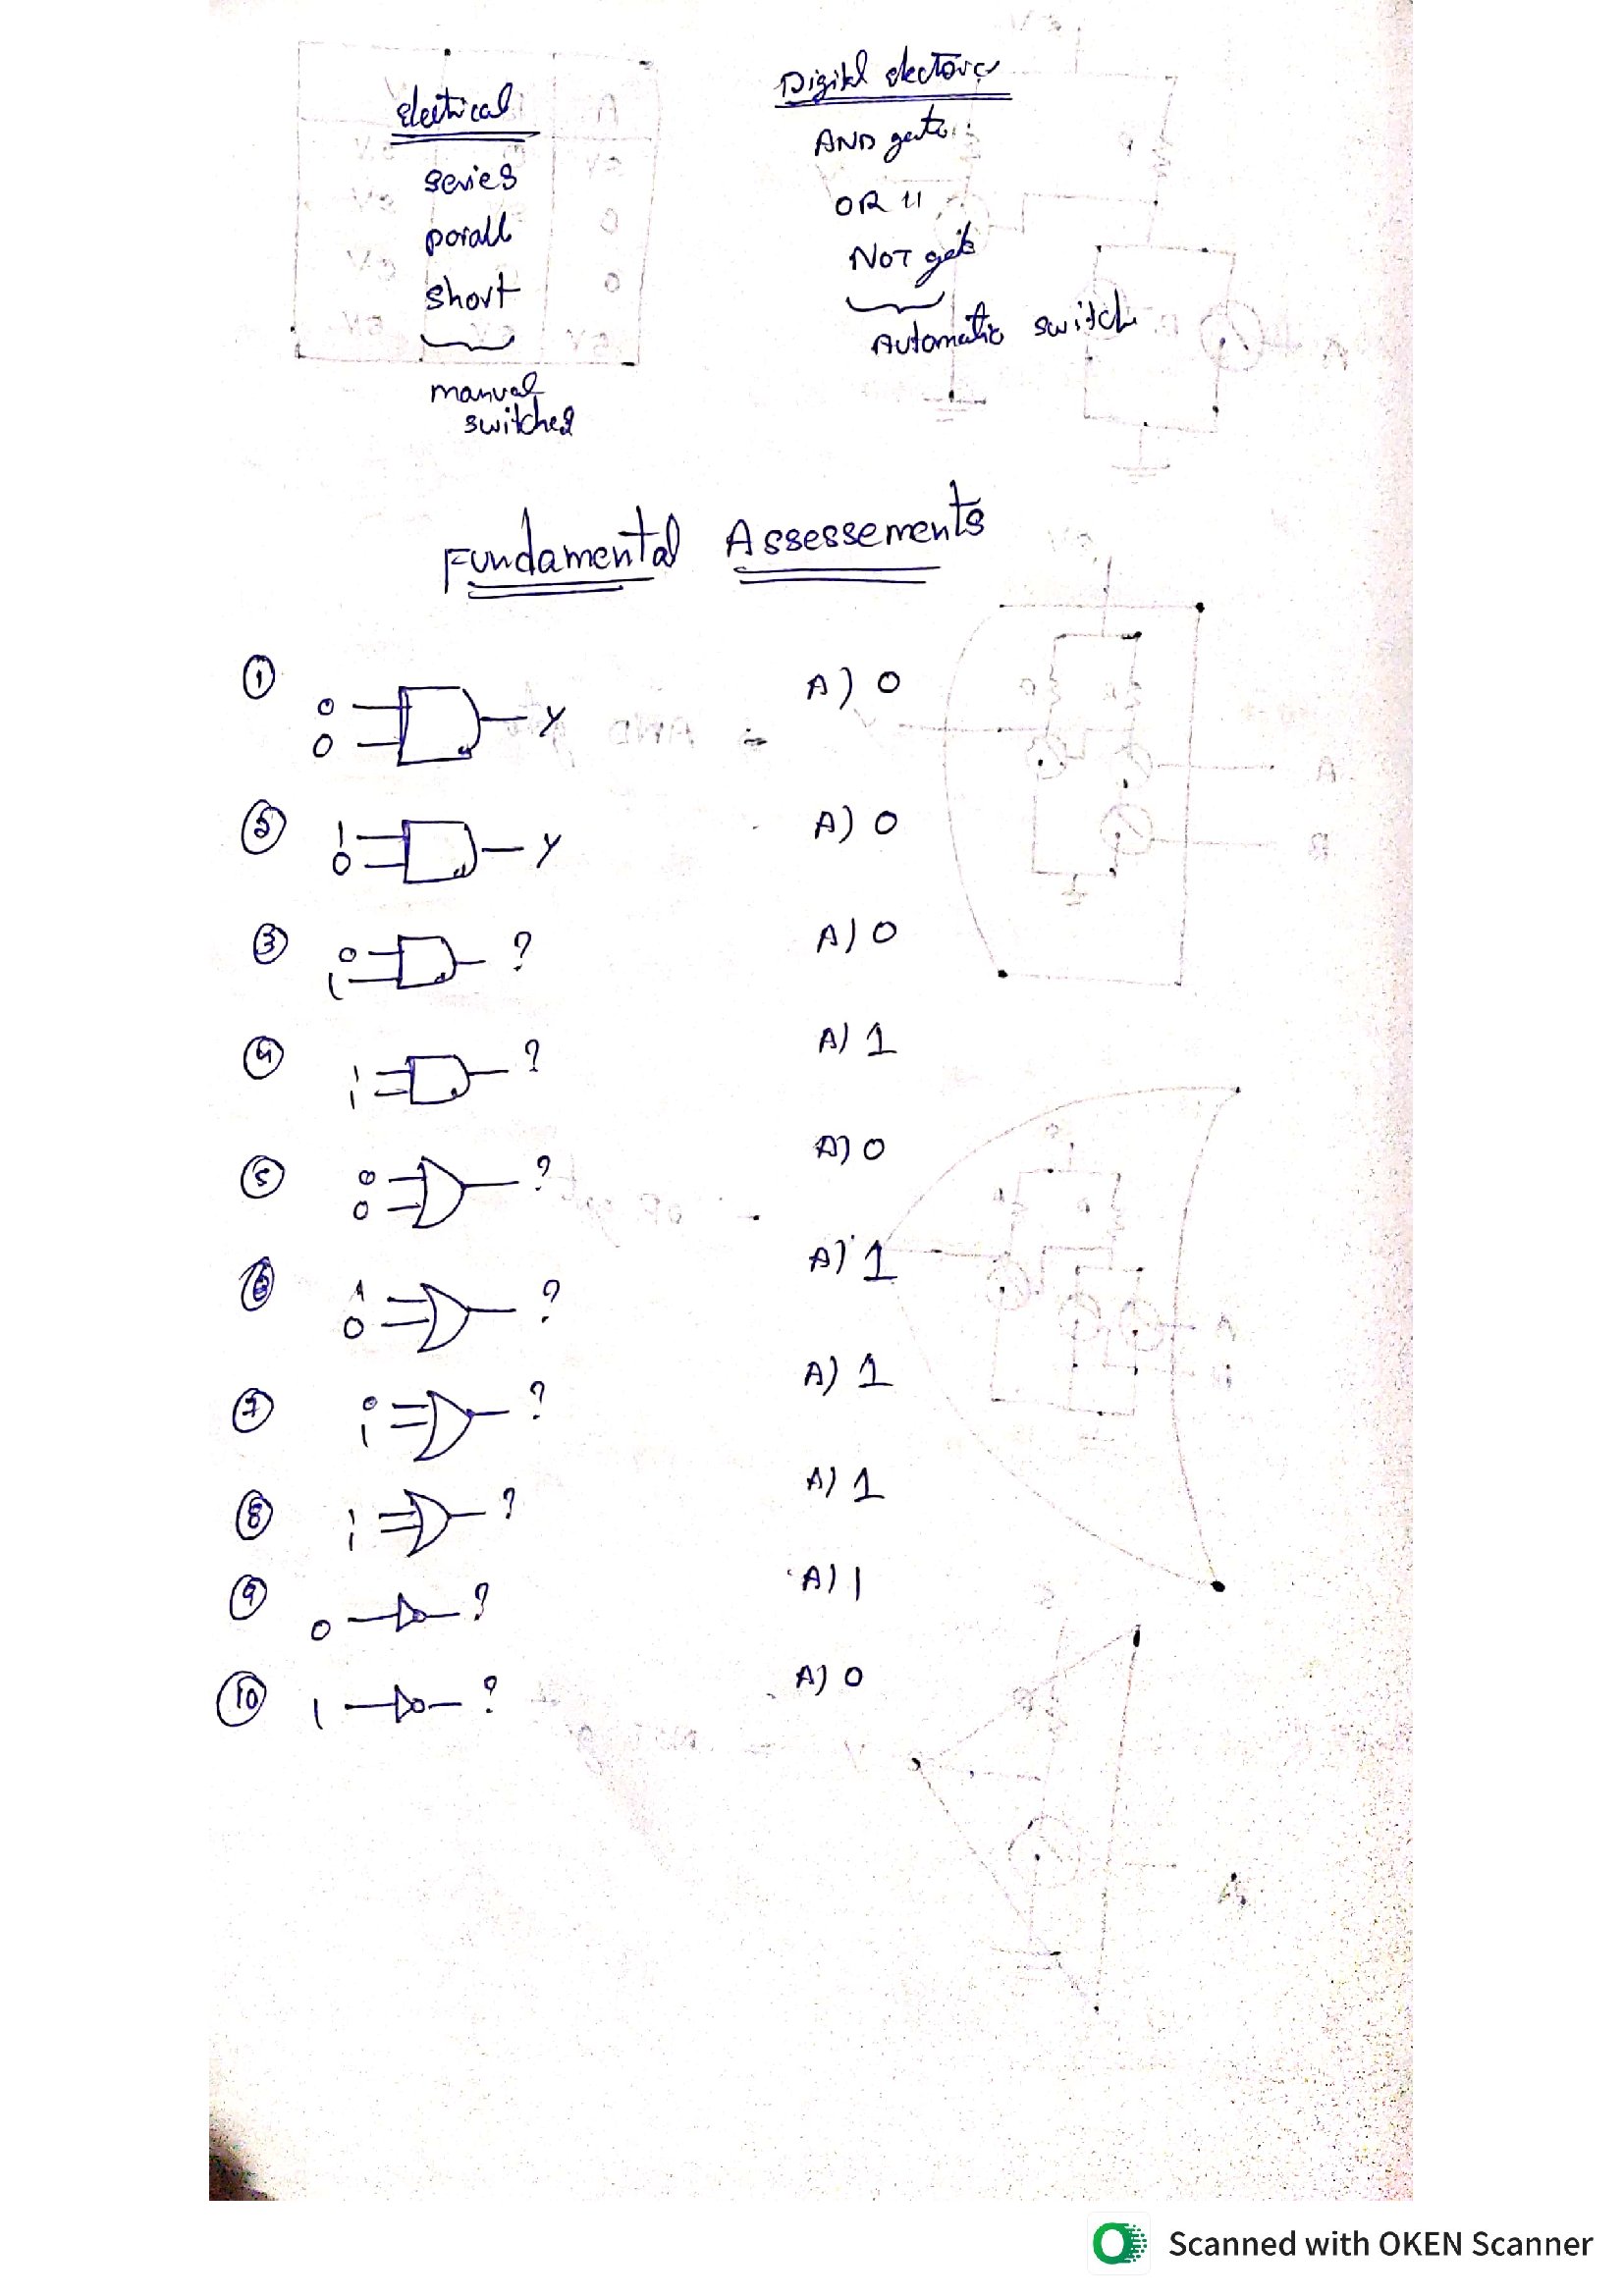 Electrical
series
porall
short
manual
switched
Digital electronic
AND gate
OR 11
NOT gate
Automatic switch
Fundamental Assessements
1
0
0
Y
A) 0
2
1
0
Y
A) 0
3
0
1
?
A) 0
4
1
1
?
A) 1
5
0
0
?
A) 0
6
1
0
?
A) 1
7
0
1
?
A) 1
8
1
1
?
A) 1
9
0
?
A) 1
10
1
?
A) 0
Scanned with OKEN Scanner